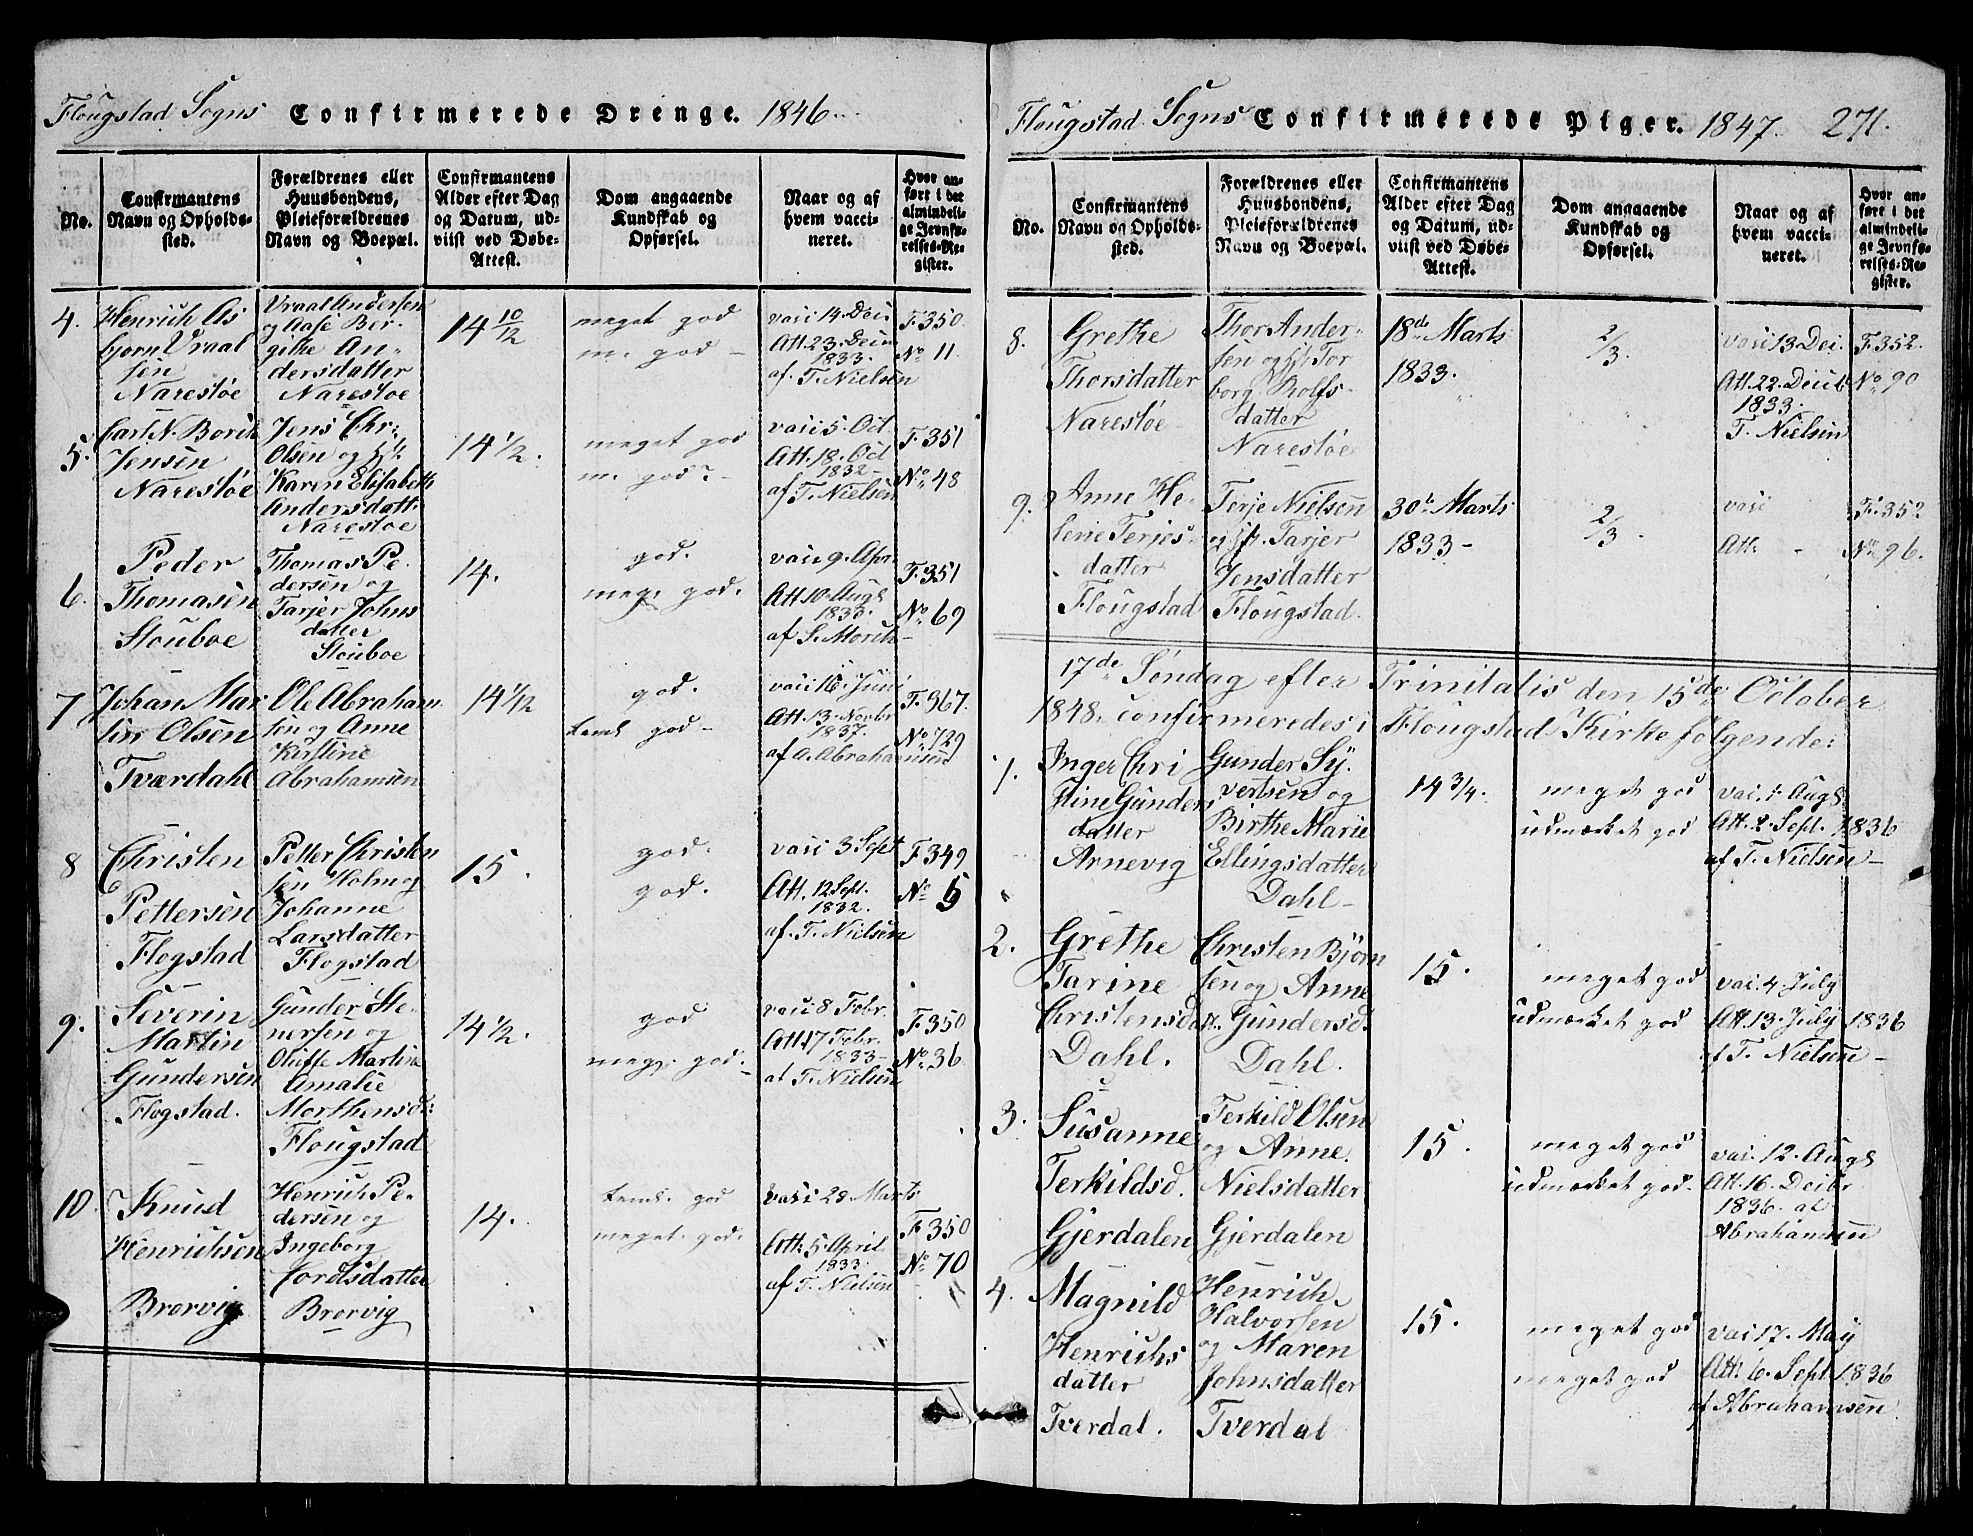 Flougstad Sogns Confirmerede Drenge. 1846.
No.
Confirmantens
Navn og Opholds-
sted.
Forældrenes eller
Huusbondens,
Pleieforældrenes
Navn og Boepæl.
Confirmantens
Alder efter Dag
og Datum, ud-
viist ved Døbe-
Attest.
Dom angaaende
Kundskab og
Opførsel.
Naar og af
hvem vacci-
neret.
Hvor an-
ført i det
almindeli-
ge Jevnfø-
relses-Re-
gister.
4.
Henrich As
bjorn Vraal
sen
Narestøe
Vraal Andersen
og Aase Ber-
githe An-
dersdatter
Narestoe
14 10/12
meget god
m. god -
vaci 14. Deci
Att. 23. Decin
1833.
af. T. Nielsen
F. 350.
No 11.
5.
Carl N. Borch
Jensen
Narestøe
Jens Chr.
Olsen og
Karen Elisabeth
Andersdatt.
Narestoe
14 1/2.
meget god
m. god
vaci 5. Oct
Att. 18. Oct
1832-
af T. Nielsen
F. 351
No 48
6.
Peder
Thomasen
Stouboe
Thomas Pe-
dersen og
Tarjer Johns
datter
Stouboe
14.
god.
meg. god.
vaci 9. Apr.
Att 10. Aug
1833.
af S. Morch-
F. 351
No 69
7
Johan Mar
tin Olsen
Tværdahl
Ole Abraham
sen og Anne
Kirstine
Abrahamsen
14 1/12
god.
teml. god-
vaci 16. Juni
Att. 13. Novbr
1837.
af A. Abrahamsen
F. 367.
No 729
8
Christen
Pettersen
Flogstad
Petter Christen
sen Holm og
Johanne
Larsdatter
Flogstad
15.
god.
god.
vaci 3 Sept
Att. 12 Sept.
1832.
af. T. Nielsen
F 349
No 5
9.
Severin
Martin
Gundersen
Flogstad.
Gunder Ste-
nersen og
Oluffe Martine
Amalie
Morthensd:
Flougstad
14 1/2.
god
meg. god.
vaci 8 Febr.
Att. 17 Febr.
1833-
af T. Nielsen
F. 350
No 36
10.
Knud
Henrichsen
Brørvig
Henrich Pe-
dersen og
Ingeborg
Cordtsdatter
Brørvig
14.
teml. god
meget. god.
vaci 28 Marts
Att. 5 April
1833.
af T. Nielsen
F. 350
No 70
Flougstad Sogns Confirmerede Piger. 1847. 271.
No.
Confirmantens
Navn og Opholds-
sted.
Forældrenes eller
Huusbondens,
Pleieforældrenes
Navn og Boepæl.
Confirmantens
Alder efter Dag
og Datum, ud-
viist ved Døbe-
Attest.
Dom angaaende
Kundskab og
Opførsel.
Naar og af
hvem vacci-
neret.
Hvor an-
ført i det
almindeli-
ge Jevnfø-
relses-Re-
gister.
8.
Grethe
Thorsdatter
Narestøe
Thor Ander-
sen og Tor
borg Rolfs-
datter
Narestøe
18de Marts
1833.
2/3.
vaci 13 Dei.
Att. 22. Deicb
1833.
T. Nielsen
F. 352.
No 90
9.
Anne He-
lene Terjes-
datter
Flougstad
Terje Nielsen
og Tarjer
Jensdatter
Flougstad.
30te Marts
1833-
2/3.
vaci
Att. -
F. 352
No 96.
17de Søndag efter Trinitatis den 15de October
1848. confirmeredes i Flougstad Kirke følgende:
1.
Inger Chri
stine Gunders
datter
Arnevig
Gunder Sy-
vertsen og
Birthe Marie
Ellingsdatter
Dahl-
14 3/4.
meget god
udmærket god
vai. 1 Aug
Att. 2. Sept. 1836
af T. Nielsen-
2.
Grethe
Tarine
Christensdatt.
Dahl.
Christen Bjørn
sen og Anne
Gundersd.
Dahl.
15.
meget god
udmærket god
vai. 4. July
Att. 13. July 1836
af T. Nielsen-
3.
Susanne
Terkildsd.
Gjerdalen
Terkild Olsen
og Anne
Nielsdatter
Gjerdalen
15.
meget god
udmærket god.
vai. 12. Aug
Att. 16. Decbr
1836. af
Abrahamsen
4.
Magnild
Henrichs
datter
Tverdal.
Henrich
Halvorsen
og Maren
Johnsdatter
Tverdal
15.
meget god
meget god
vai 17. May
Att. 6. Sept. 1836
af Abrahamsen.